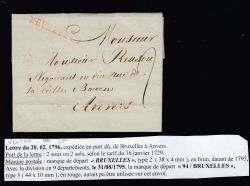 BRUXELLES
Monsieur
Monsieur
Negociant en vins rue de
la vieille Bourse
Anvers
Lettre du 20. 02. 1796, expédiée en port dû, de Bruxelles à Anvers.
Port de la lettre : 2 sous ou 2 sols, selon le tarif du 16 janvier 1729.
Marque postale : marque de départ « BRUXELLES », type 2 ( 38 x 4 mm ), en brun, datant de 1795.
Avec la division en 9 départements, le 31/08/1795, la marque de départ « 94 / BRUXELLES »,
type 5 ( 44 x 10 mm ), en rouge, aurait pu être utilisée sur cet envoi.